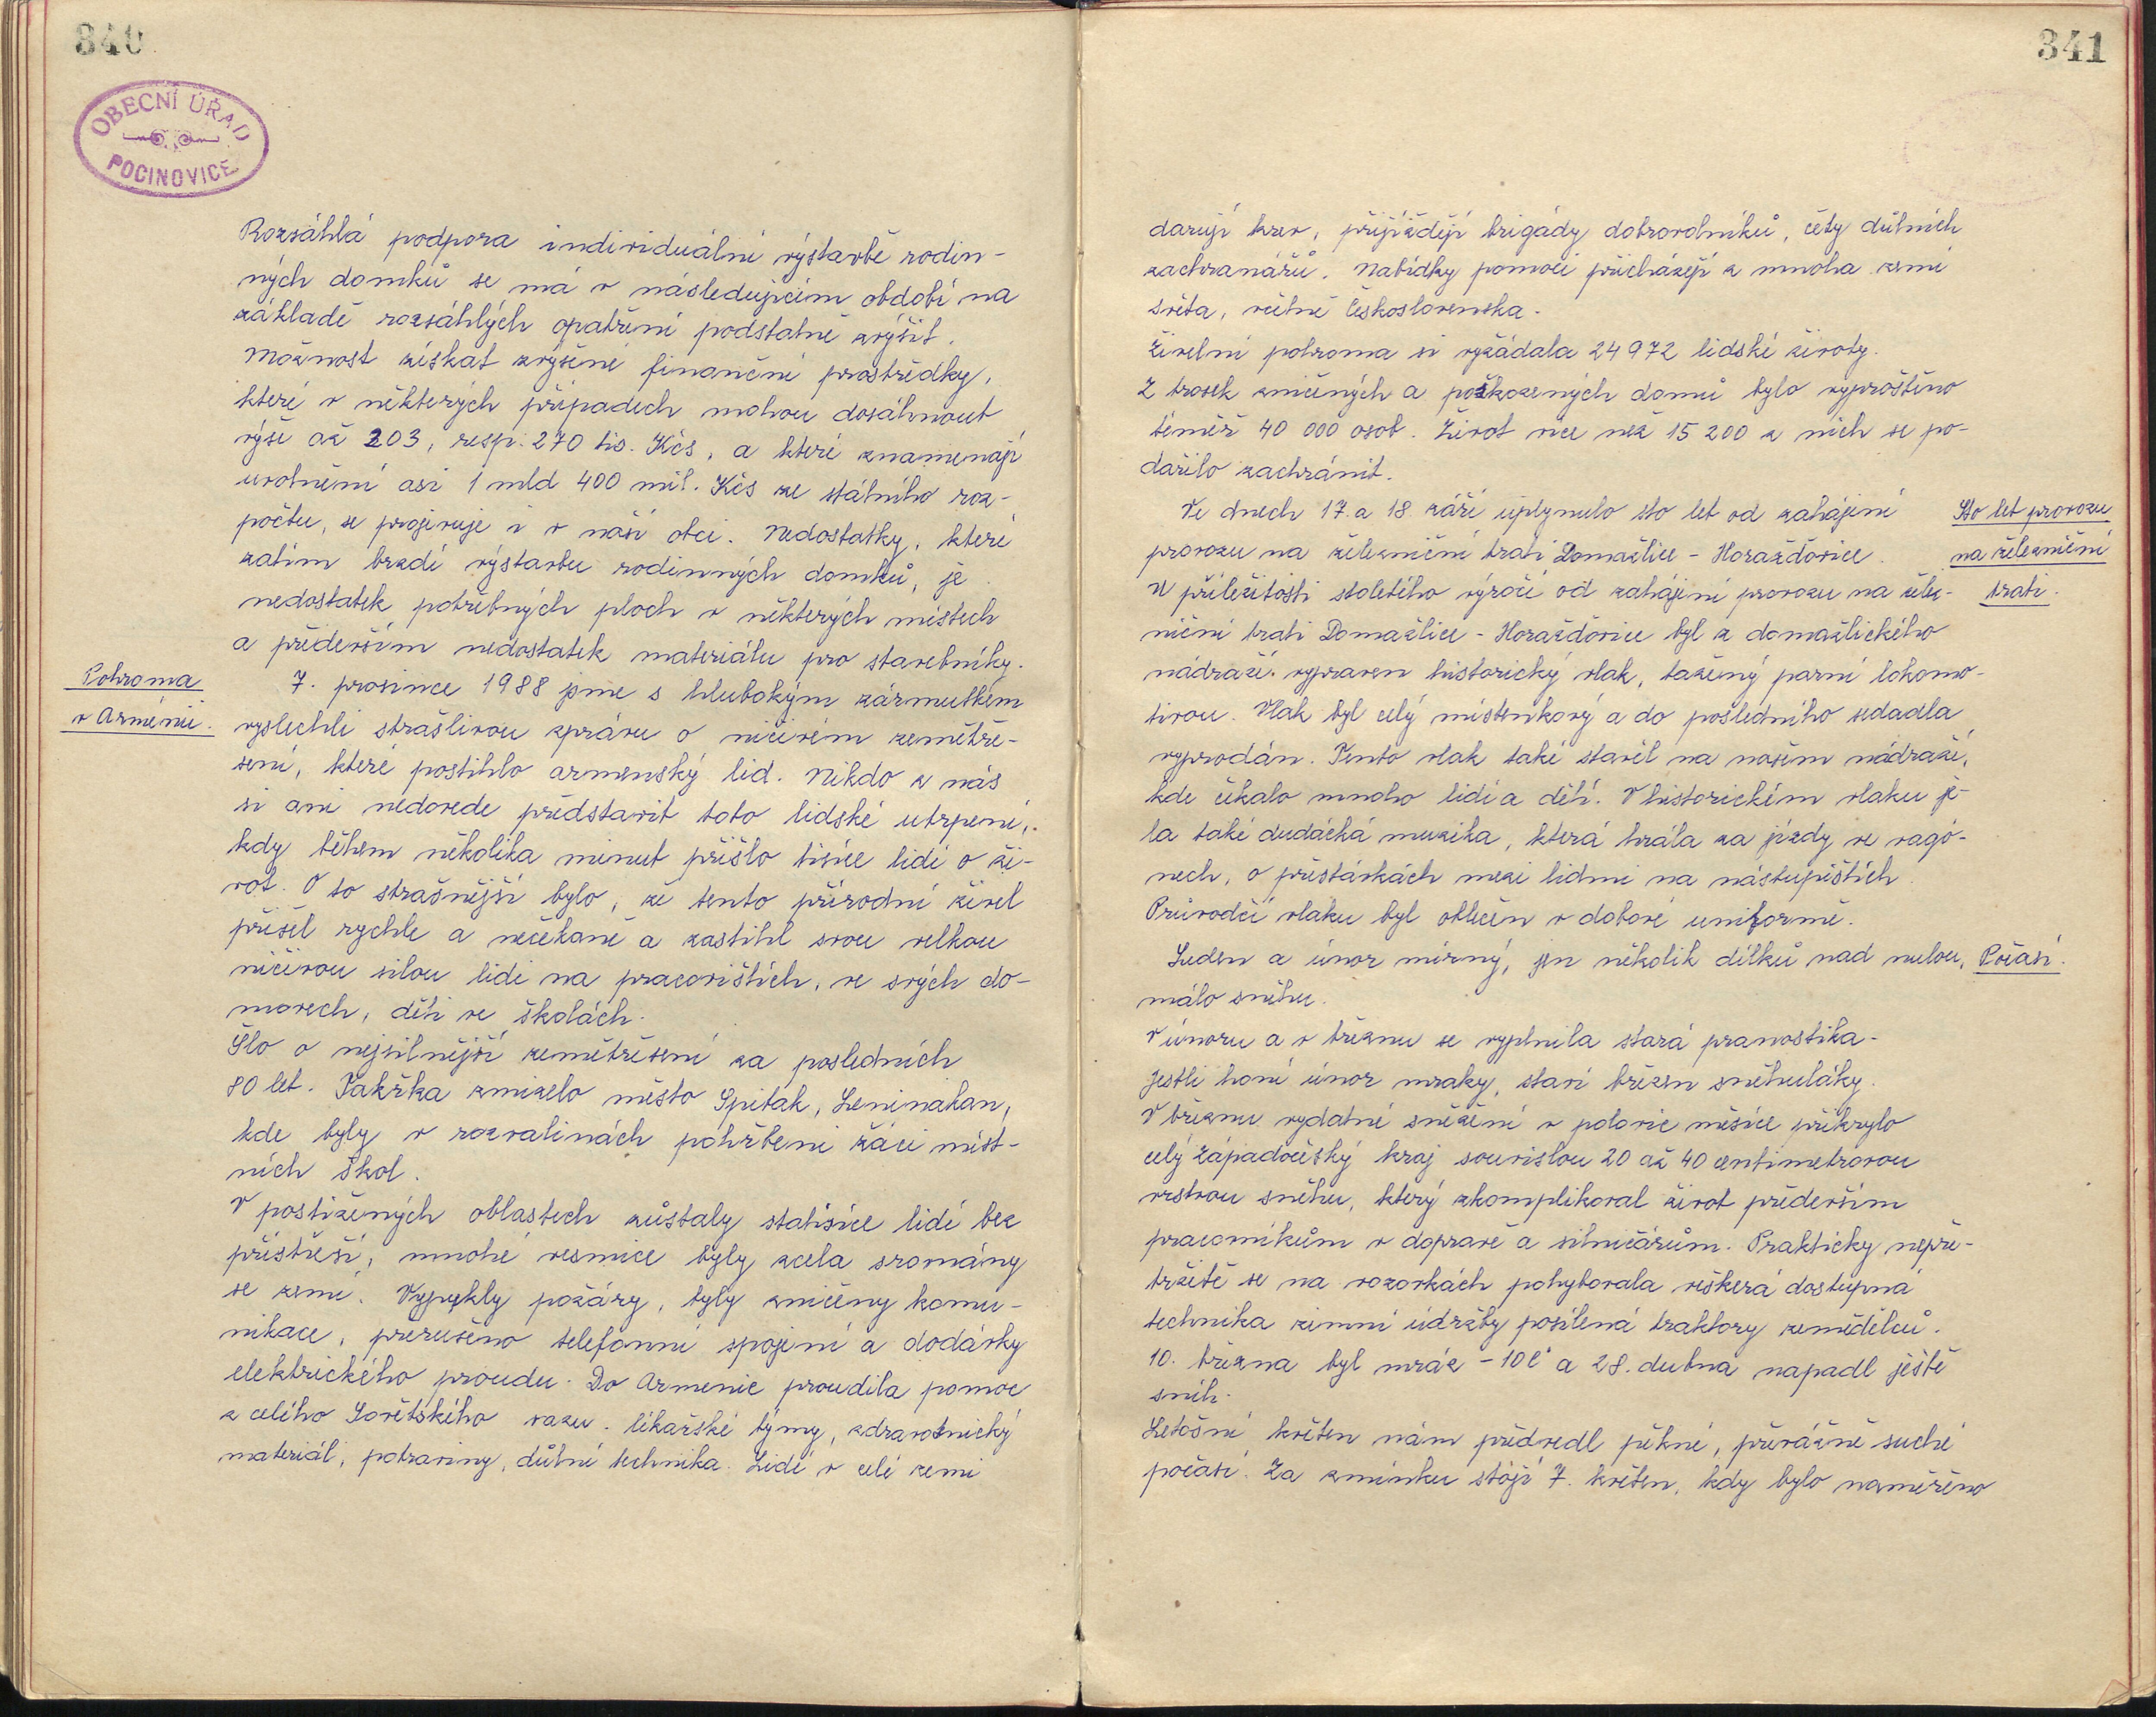 340
OBECNÍ ÚŘAD
POCINOVICE
Rozsáhlá podpora individuální výstavbě rodin-
ných domků se má v následujícím období na
základě rozsáhlých opatření podstatně zvýšit.
Možnost získat zvýšené finanční prostředky,
které v některých případech mohou dosáhnout
výše až 203, resp. 270 tis. Kčs, a které znamenají
uvolnění asi 1 mld 400 mil. Kčs ze státního roz-
počtu, se projevuje i v naší obci. Nedostatky, které
zatím brzdí výstavbu rodinných domků, je
nedostatek potřebných ploch v některých místech
a především nedostatek materiálu pro stavebníky.
Pohroma
v Arménii.
7. prosince 1988 jsme s hlubokým zármutkem
vyslechli strašlivou zprávu o ničivém zemětře-
sení, které postihlo armenský lid. Nikdo z nás
si ani nedovede představit toto lidské utrpení,
kdy během několika minut přišlo tisíce lidí o ži-
vot. O to strašnější bylo, že tento přírodní živel
přišel rychle a nečekaně a zastihl svou velkou
ničivou silou lidi na pracovištích, ve svých do-
movech, děti ve školách.
Šlo o nejsilnější zemětřesení za posledních
80 let. Takřka zmizelo město Spitak, Leninakan,
kde byly v rozvalinách pohřbeni žáci míst-
ních škol.
V postižených oblastech zůstaly statisíce lidí bez
přístřeší, mnohé vesnice byly zcela srovnány
se zemí. Vypukly požáry, byly zničeny komu-
nikace, přerušeno telefonní spojení a dodávky
elektrického proudu. Do Armenie proudila pomoc
z celého Sovětského svazu. lékařské týmy, zdravotnický
materiál, potraviny, důlní technika. Lidé v celé zemi
341
darují krev, přijíždějí brigády dobrovolníků, čety důlních
zachranářů. Nabídky pomoci přicházejí z mnoha zemí
světa, včetně Československa.
Živelní pohroma si vyžádala 24 972 lidské životy.
Z trosek zničených a poškozených domů bylo vyproštěno
téměř 40 000 osob. Život více než 15 200 z nich se po-
dařilo zachránit.
Ve dnech 17. a 18. září uplynulo sto let od zahájení
Sto let provozu
na železniční
trati.
provozu na železniční trati Domažlice - Horažďovice.
U příležitosti stoletého výročí od zahájení provozu na želez-
niční trati Domažlice - Horažďovice byl z domažlického
nádraží vypraven historický vlak, tažený parní lokomo-
tivou. Vlak byl celý místenkový a do posledního sedadla
vyprodán. Tento vlak také stavěl na našem nádraží,
kde čekalo mnoho lidí a dětí. V historickém vlaku je-
la také dudácká muzika, která hrála za jízdy ve vagó-
nech, o přestávkách mezi lidmi na nástupištích.
Průvodčí vlaku byl oblečen v dobové uniformě.
Leden a únor mírný, jen několik dílků nad nulou,
Počasí.
málo sněhu.
V únoru a v březnu se vyplnila stará pranostika-
Jestli honí únor mraky, staví březen sněhuláky.
V březnu vydatné sněžení v polovic měsíce přikrylo
celý západočeský kraj souvislou 20 až 40 centimetrovou
vrstvou sněhu, který zkomplikoval život především
pracovníkům v dopravě a silničářům. Prakticky nepře-
tržitě se na vozovkách pohybovala veškerá dostupná
technika zimní údržby posílená traktory zemědělců.
10. března byl mráz -10 C° a 28. dubna napadl ještě
sníh.
Letošní květen nám předvedl pěkné, převážně suché
počasí. Za zmínku stojí 7. květen, kdy bylo naměřeno